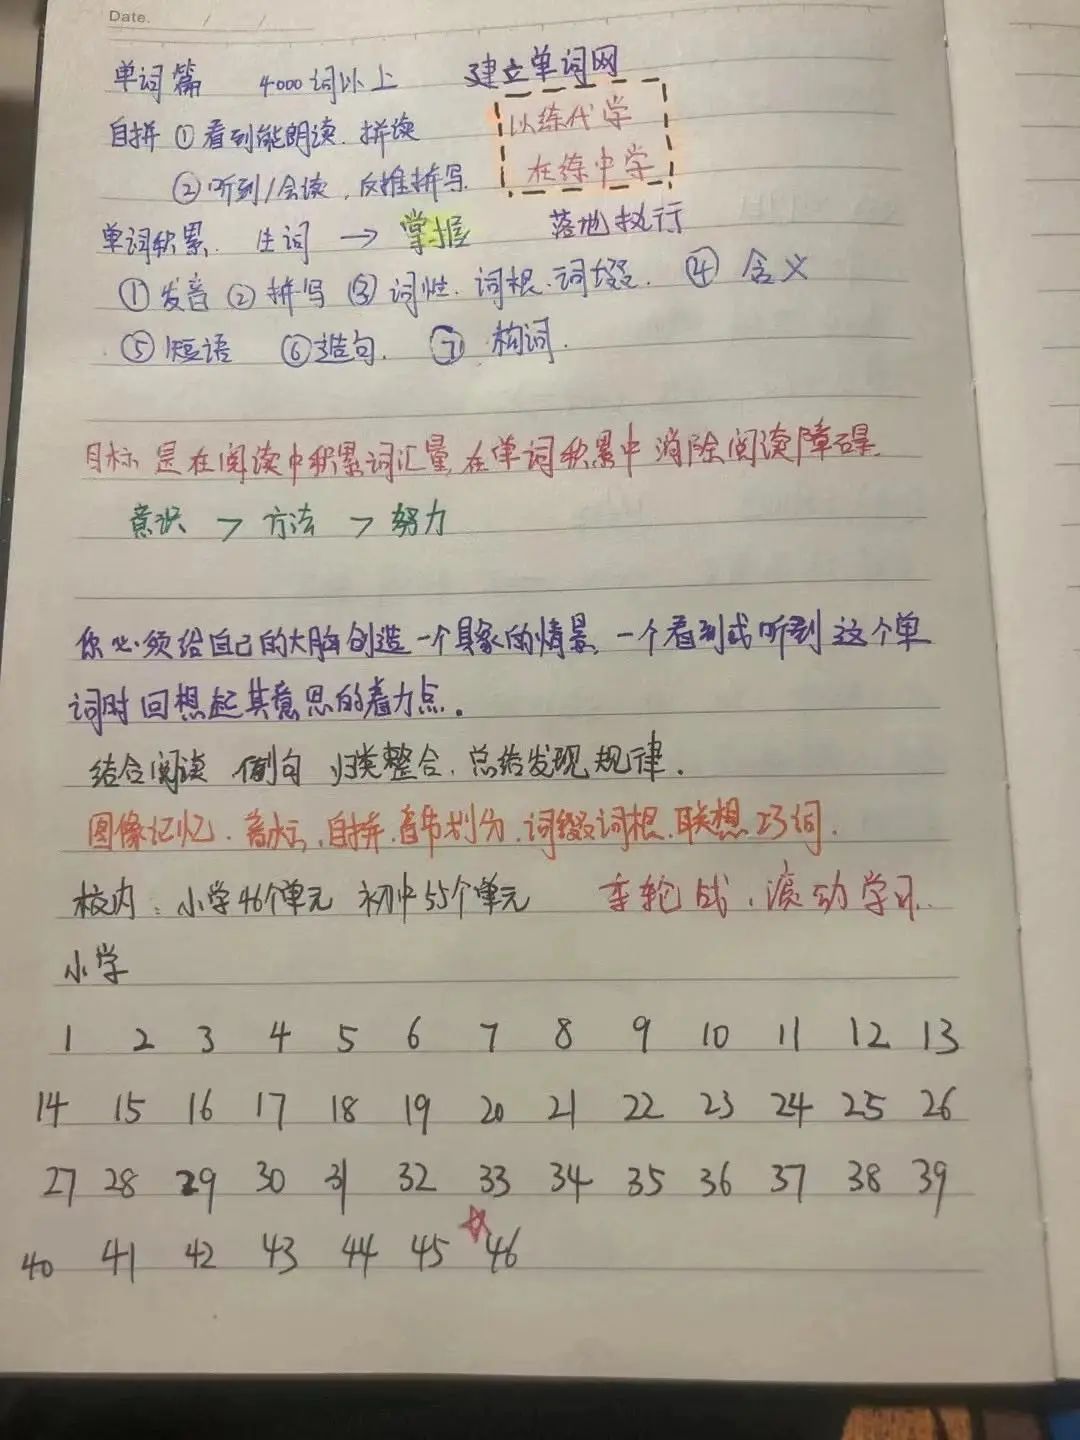 Date. / /
单词篇 4000词以上 建立单词网
自拼 ①看到能朗读. 拼读 以练代学
②听到/会读, 反推拼写. 在练中学
单词积累. 生词 → 掌握 落地执行
①发音 ②拼写 ③词性. 词根. 词缀. ④含义
⑤短语 ⑥造句. ⑦构词.
目标是在阅读中积累词汇量,在单词积累中消除阅读障碍.
意识 > 方法 > 努力
你必须给自己的大脑创造一个具象的情景,一个看到或听到这个单
词时回想起其意思的着力点.
结合阅读 例句 归类整合, 总结发现规律.
图像记忆. 音标, 自拼. 音节划分. 词缀词根. 联想巧词.
校内: 小学46个单元 初中55个单元 车轮战, 滚动学习.
小学
1 2 3 4 5 6 7 8 9 10 11 12 13
14 15 16 17 18 19 20 21 22 23 24 25 26
27 28 29 30 31 32 33 34 35 36 37 38 39
40 41 42 43 44 45 46